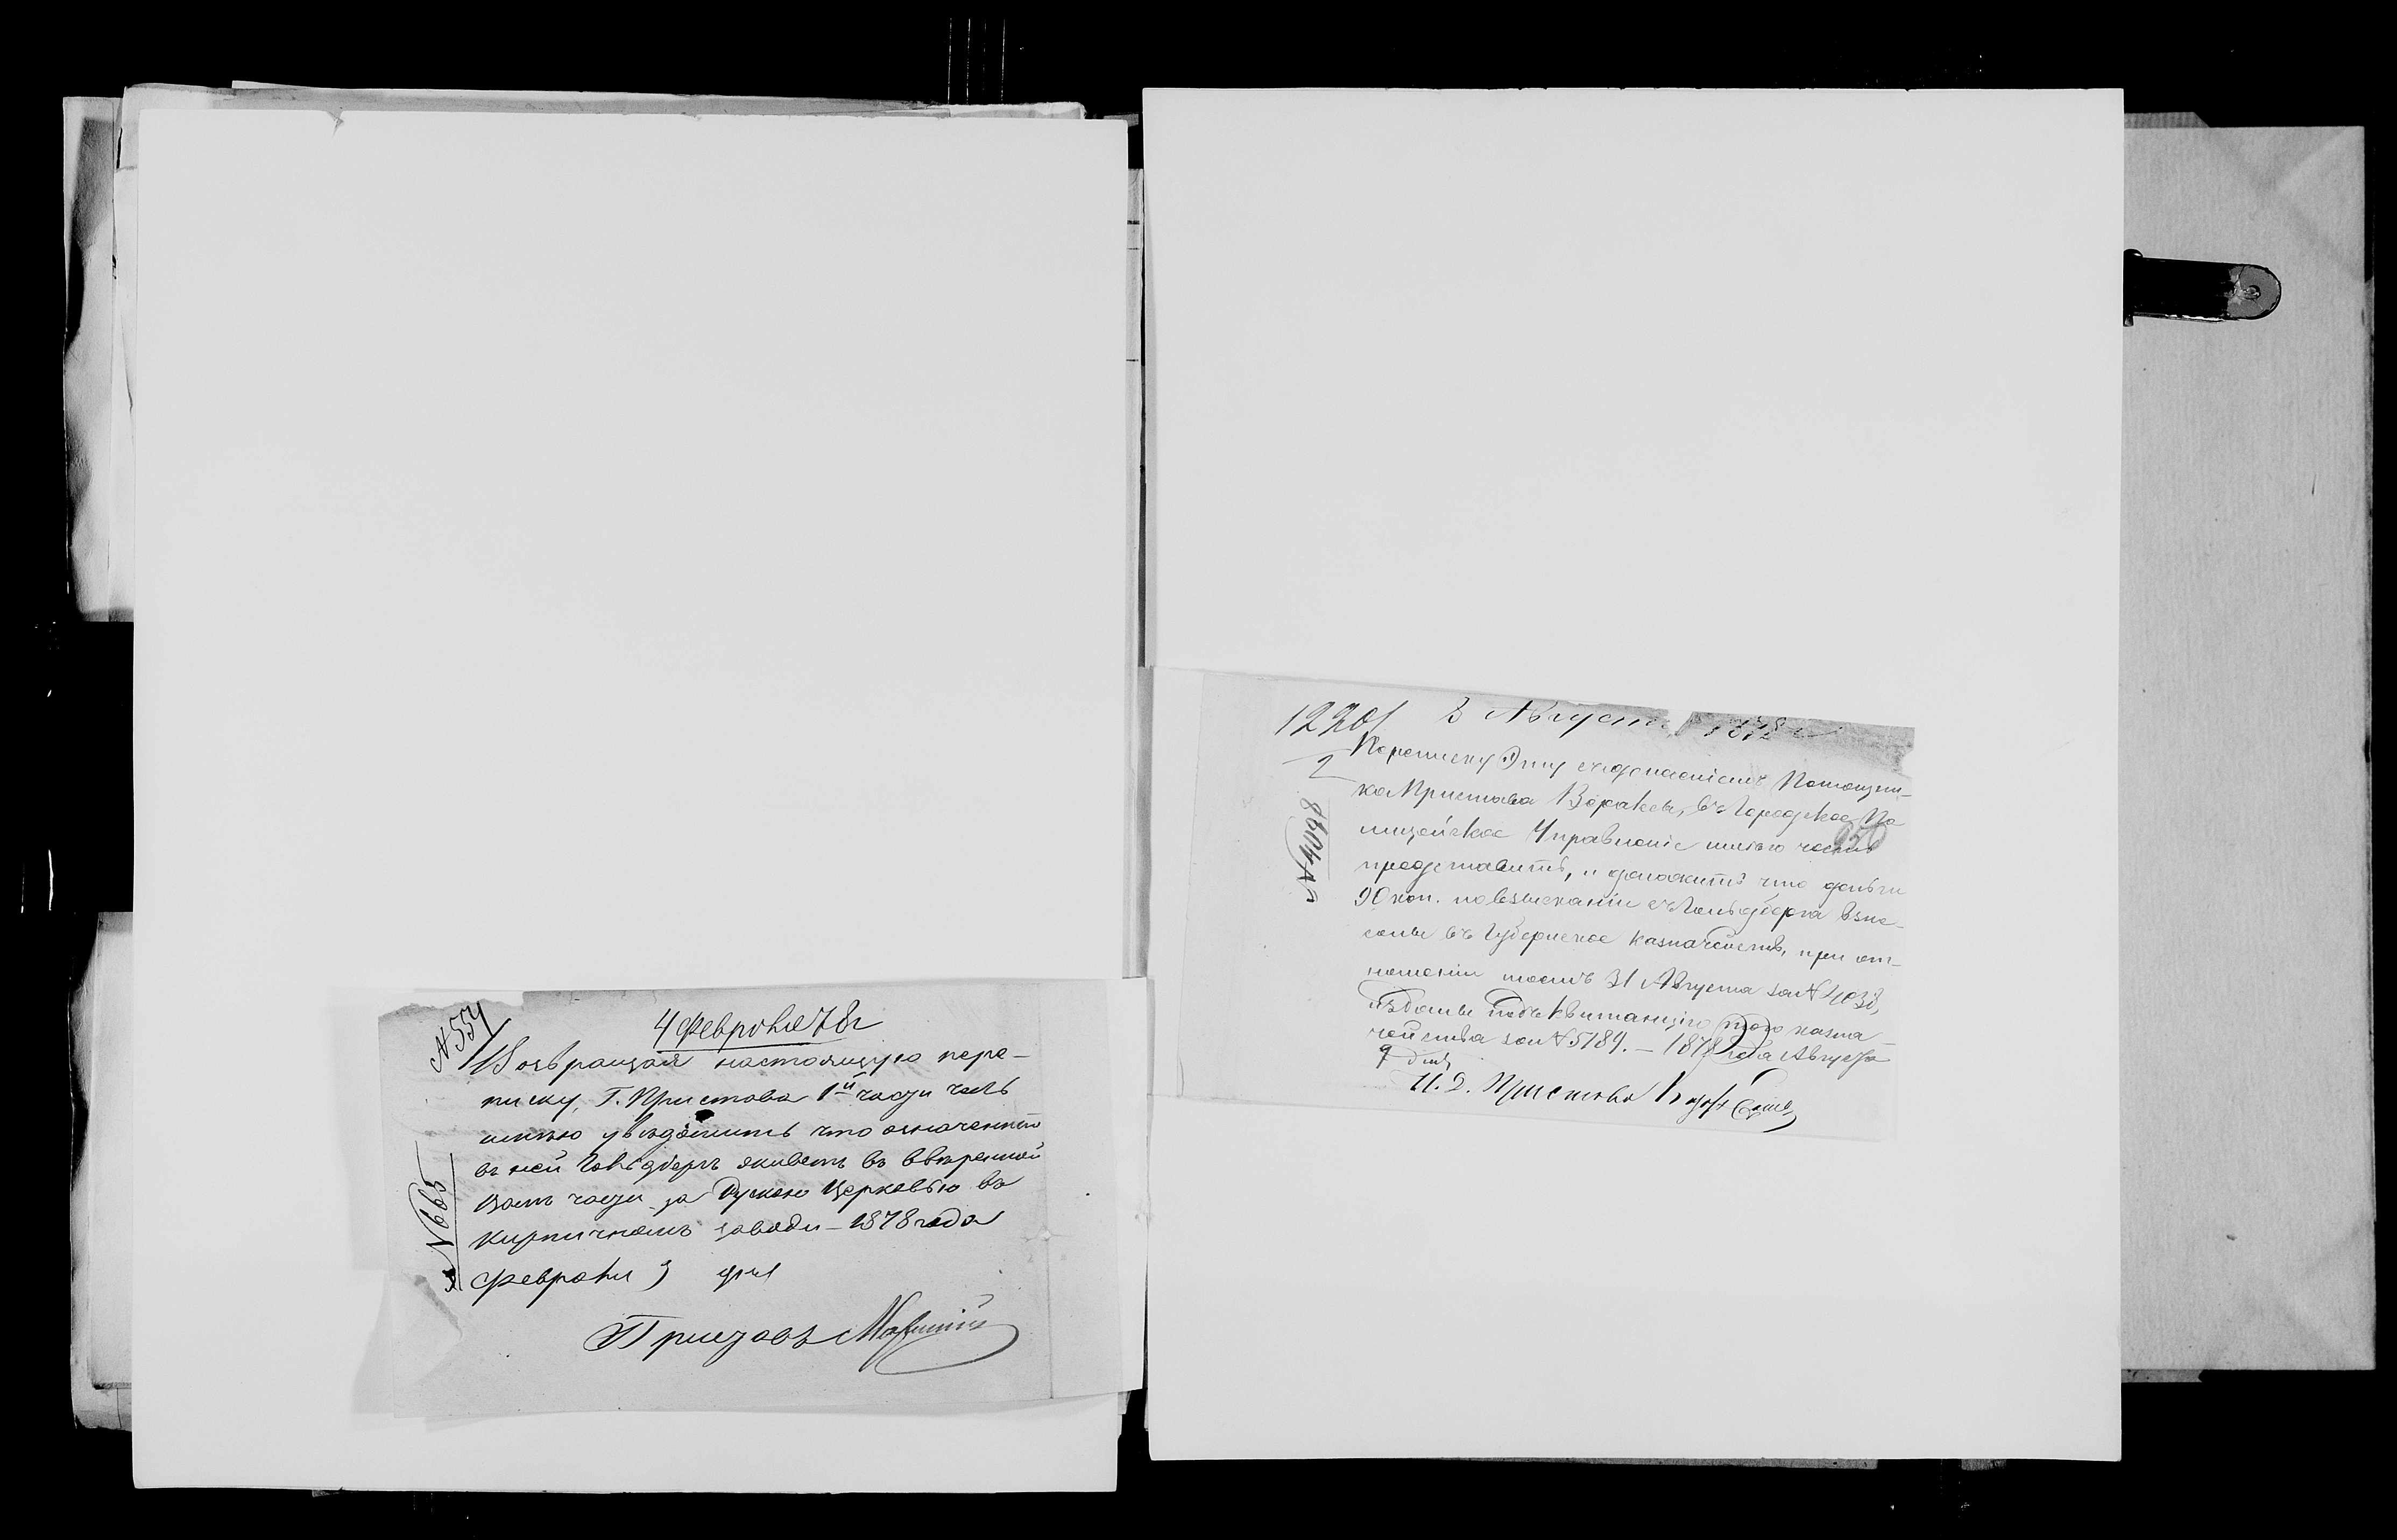 N 554
4 Февраля 78 г
Возвращая настоящую пере-
писку, Г. Пристава 1й части честь
имѣю увѣдомить что означенный
въ ней Гольдберг живетъ въ ввѣренной
Вамъ части за Рускою Церковью въ
кирпичномъ заводи – 1878 года
Февраля 3 дня
N 665
Приставъ
12201
3 Август 1878 г
2
Переписку Эту съ донесеніемъ Помощни-
ка Пристава въ Городское По
лицейское Управленіе имѣю честь
представить, и доложить что деньги
90 коп. по взысканіи съ Гольдберга взне-
сены въ Губернское казначейств, при от-
ношеніи моемъ 31 Августа за N 4038,
подъ Квитанцію того казна-
чейства за N 5189. – 1878 года Августа
9 дня
N 4098
950
И. Д. Пристава